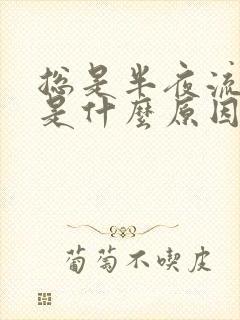 总是半夜流
是什麼原因
葡萄不喫皮